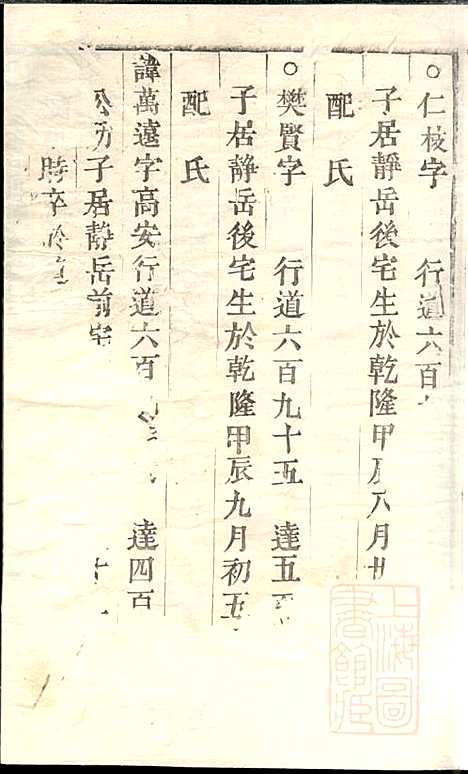 ○仁枝字 行道六百
子居靜岳後宅生於乾隆甲辰八月廿
配 氏
○樊賢字 行道六百九十五 達五百
子居靜岳後宅生於乾隆甲辰九月初五
配 氏
諱萬遠字高安行道六百 達四百
子居靜岳前宅 十
時卒於
上海圖書館